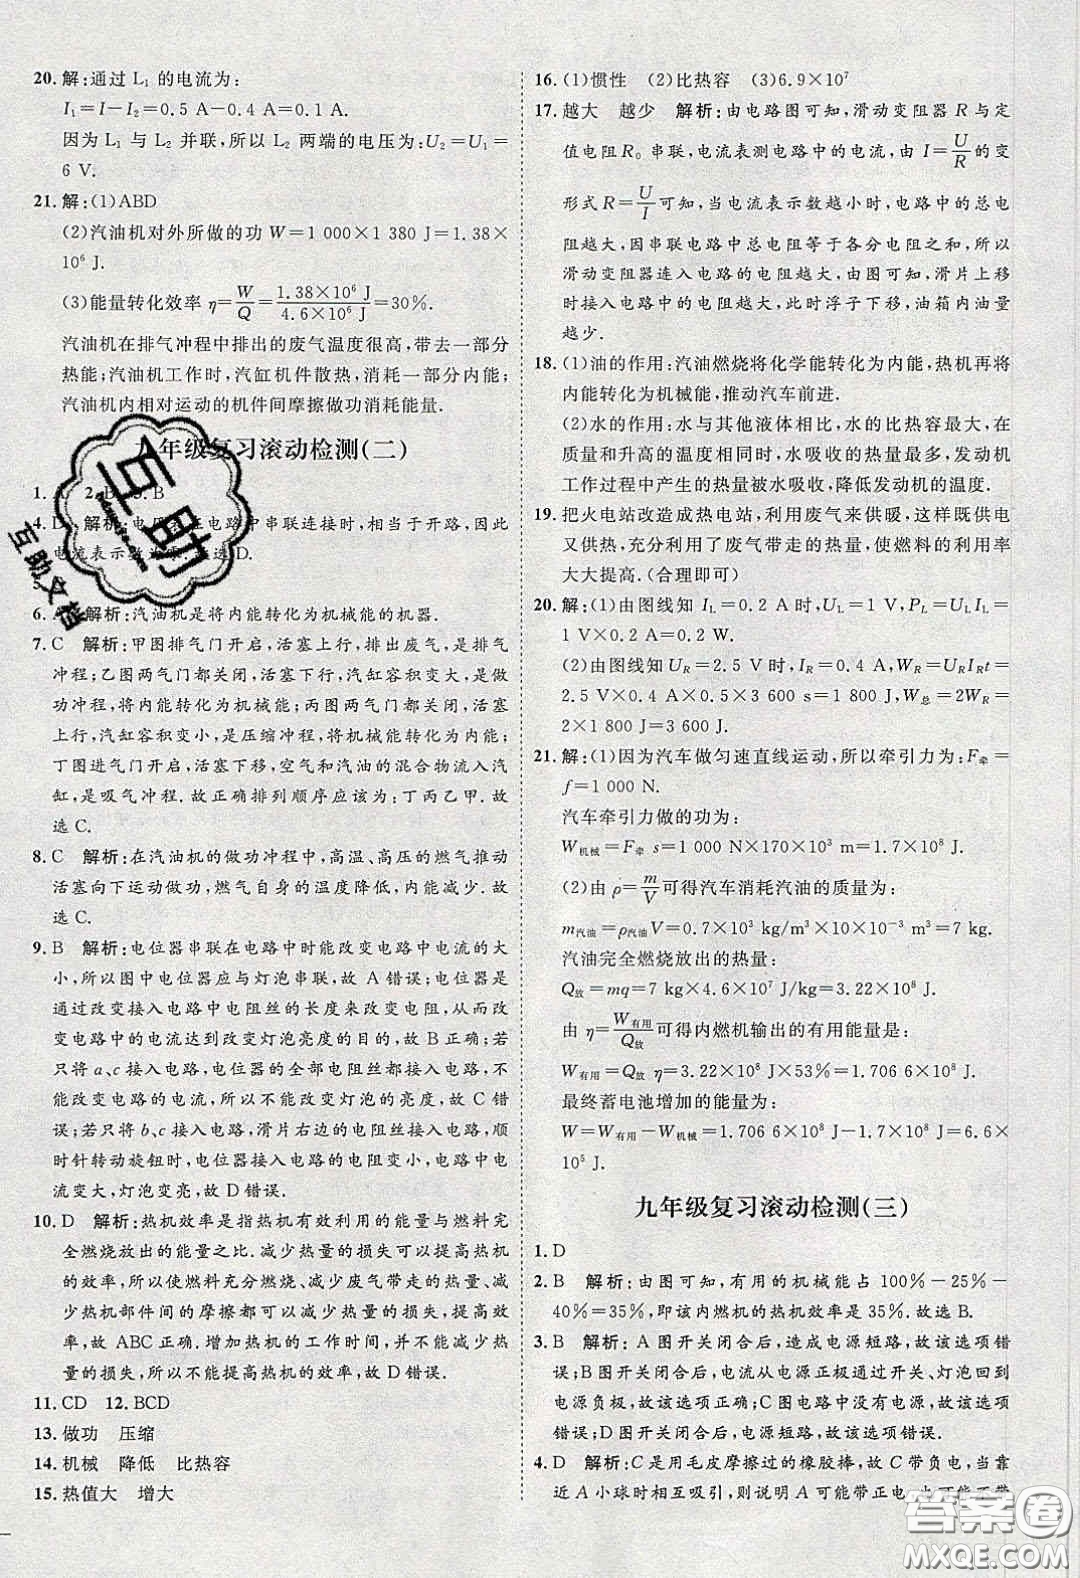 20. 解:通过 L₁ 的电流为:
I₁=I-I₂=0.5 A-0.4 A=0.1 A.
因为 L₁ 与 L₂ 并联,所以 L₂ 两端的电压为:U₂=U₁=
6 V.
21. 解:(1)ABD
(2)汽油机对外所做的功 W=1 000×1 380 J=1.38×
10⁶ J.
(3)能量转化效率 η=W/Q=1.38×10⁶ J/4.6×10⁶ J=30%.
汽油机在排气冲程中排出的废气温度很高,带去一部分
热能;汽油机工作时,汽缸机件散热,消耗一部分内能;
汽油机内相对运动的机件间摩擦做功消耗能量.
九年级复习滚动检测(二)
1. A 2. B 3. B
4. D 解析:电压表在电路中串联连接时,相当于开路,因此
电流表示数为零.故选 D.
5.
6. A 解析:汽油机是将内能转化为机械能的机器.
7. C 解析:甲图排气门开启,活塞上行,排出废气,是排气
冲程;乙图两气门都关闭,活塞下行,汽缸容积变大,是做
功冲程,将内能转化为机械能;丙图两气门都关闭,活塞
上行,汽缸容积变小,是压缩冲程,将机械能转化为内能;
丁图进气门开启,活塞下移,空气和汽油的混合物流入汽
缸,是吸气冲程.故正确排列顺序应该为:丁丙乙甲.故
选 C.
8. C 解析:在汽油机的做功冲程中,高温、高压的燃气推动
活塞向下运动做功,燃气自身的温度降低,内能减少.故
选 C.
9. B 解析:电位器串联在电路中时能改变电路中电流的大
小,所以图中电位器应与灯泡串联,故 A 错误;电位器是
通过改变接入电路中电阻丝的长度来改变电阻,从而改变
电路中的电流达到改变灯泡亮度的目的,故 B 正确;若
只将 a、c 接入电路,电位器的全部电阻丝接入电路,不
能改变电路的电流,所以不能改变灯泡的亮度,故 C 错
误;若只将 b、c 接入电路,滑片右边的电阻丝接入电路,顺
时针转动旋钮时,电位器接入电路的电阻变小,电路中电
流变大,灯泡变亮,故 D 错误.
10. D 解析:热机效率是指热机有效利用的能量与燃料完
全燃烧放出的能量之比.减少热量的损失可以提高热机
的效率,所以使燃料充分燃烧、减少废气带走的热量、减
少热机部件间的摩擦都可以减少热量的损失,提高热机效
率,故 ABC 正确.增加热机的工作时间,并不能减少热
量的损失,所以不能提高热机的效率,故 D 错误.
11. CD 12. BCD
13. 做功 压缩
14. 机械 降低 比热容
15. 热值大 增大
16. (1)惯性 (2)比热容 (3)6.9×10⁷
17. 越大 越少 解析:由电路图可知,滑动变阻器 R 与定
值电阻 R₀ 串联,电流表测电路中的电流,由 I=U/R 的变
形式 R=U/I 可知,当电流表示数越小时,电路中的总电
阻越大,因串联电路中总电阻等于各分电阻之和,所以
滑动变阻器连入电路的电阻越大,由图可知,滑片上移
时接入电路中的电阻越大,此时浮子下移,油箱内油量
越少.
18. (1)油的作用:汽油燃烧将化学能转化为内能,热机再将
内能转化为机械能,推动汽车前进.
(2)水的作用:水与其他液体相比,水的比热容最大,在
升高的温度相同时,水吸收的热量最多,发动机
工作过程中产生的热量被水吸收,降低发动机的温度.
19. 把火电站改造成热电站,利用废气来供暖,这样既供电
又供热,充分利用了废气带走的热量,使燃料的利用率
大大提高.(合理即可)
20. 解:(1)由图线知 I_L=0.2 A 时,U_L=1 V,P_L=U_L I_L=
1 V×0.2 A=0.2 W.
(2)由图线知 U_R=2.5 V 时,I_R=0.4 A,W_R=U_R I_R t=
2.5 V×0.4 A×0.5×3 600 s=1 800 J,W总=2W_R=
2×1 800 J=3 600 J.
21. 解:(1)因为汽车做匀速直线运动,所以牵引力为:F牵=
f=1 000 N.
汽车牵引力做的功为:
W机械=F牵 s=1 000 N×170×10³ m=1.7×10⁸ J.
(2)由 ρ=m/V可得汽车消耗汽油的质量为:
m汽油=ρ汽油V=0.7×10³ kg/m³×10×10⁻³ m³=7 kg.
汽油完全燃烧放出的热量:
Q放=mq=7 kg×4.6×10⁷ J/kg=3.22×10⁸ J.
由 η=W有用/Q放可得内燃机输出的有用能量是:
W有用=Q放 η=3.22×10⁸ J×53%=1.706 6×10⁸ J.
最终蓄电池增加的能量为:
W=W有用-W机械=1.706 6×10⁸ J-1.7×10⁸ J=6.6×
10⁵ J.
九年级复习滚动检测(三)
1. D
2. B 解析:由图可知,有用的机械能占 100%-25%-
40%=35%,即该内燃机的热机效率是 35%.故选 B.
3. B 解析:A 图开关闭合后,造成电源短路,故该选项错
误;B 图开关闭合后,电流从电源正极通过开关、灯泡回到
负极,故该选项正确;C 图电路中没有电源,故该选项
错误;D 图开关闭合后,电源短路,故该选项错误.
4. D 解析:C 是用毛皮摩擦过的橡胶棒,故 C 带负电,当靠
近 A 小球时相互吸引,则说明 A 可能带正电,也可能不带
互助
互助文档
答案圈
MXQE.COM